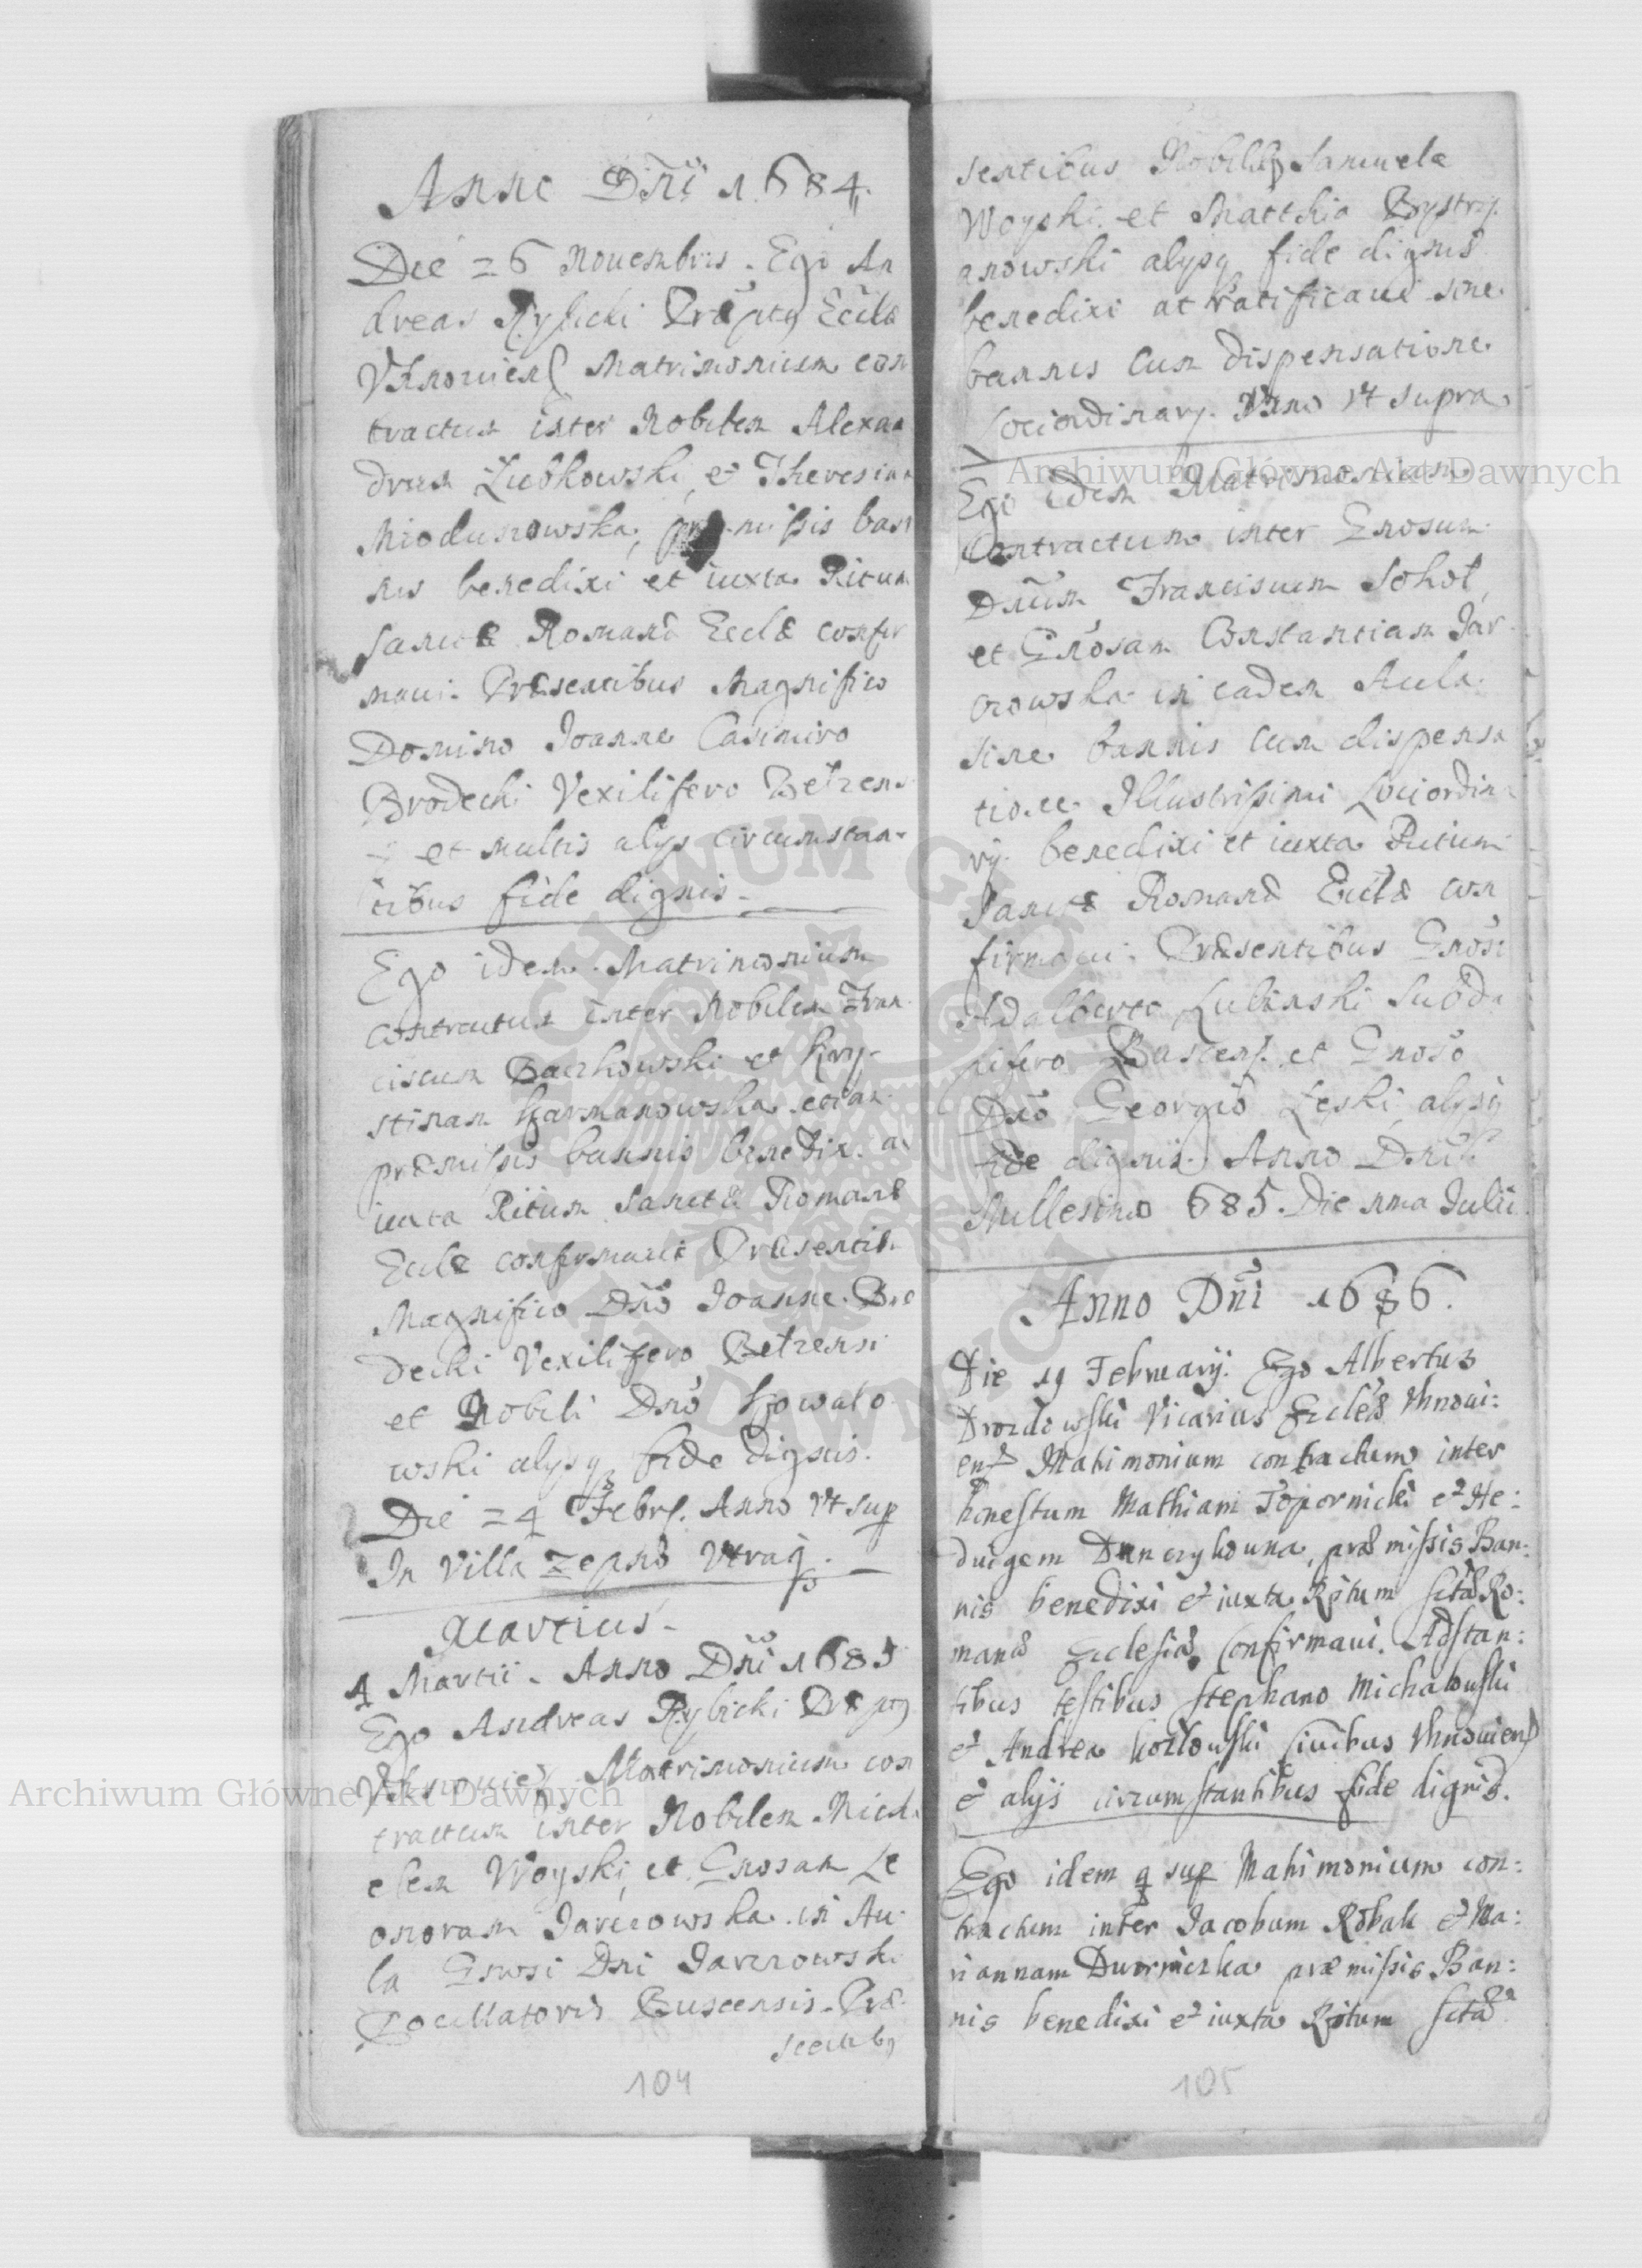 Anno Dñi 1684.
Die 26 Nouembris. Ego An
dreas Rylicki Præptg Ecclæ
Vhnouien. Matrimonium con
tractum inter Nobilem Alexan
drum Łubkowski, et Theresiam
Miodunowska, præmissis ban
nis benedixi et iuxta Ritum
Sanctæ Romanæ Ecclæ confir
maui. Præsentibus Magnifico
Domino Joanne Casimiro
Brodecki Vexilifero Bełzens
et multis alys circumstan-
tibus fide dignis.
Ego idem Matrimonium
contractum inter Nobilem Fran
ciscum Baczkowski et Kry-
stinam Karmanowska etiam
præmissis bannis benedix. ac
iuxta Ritum Sanctæ Romanæ
Ecclæ confirmaui Præsentib.
Magnifico Dño Joanne Bro
decki Vexilifero Bełzensi
et Nobili Dño Kowalo
wski alysq fide dignis.
Die 24 Febr. Anno Vt sup
In Villa Vtraq.
Martius.
4 Martii. Anno Dñi 1685
Ego Andreas Rylicki Præptg
Vhnouien. Matrimonium con
tractum inter Nobilem Mich
elem Woyski, et Gnosam Le
onoram Jarczowska in Au-
la Gnosi Dni Jarczowski
Pocillatoris Buscensis. Præ-
sentibg
104
sentibus Nobilib Samuele
Woyski et Matthia Brystrzy
anowski alysq fide dignis
benedixi at ratificaui sine
bannis cum dispensatione
Lociordinary. Anno Vt supra
Ego idem Matrimonium
Contractum inter Gnosum
Dnum Franciscum Sokoł,
et Gnosam Constantiam Jar
czowska in eadem Aula
sine bannis cum dispensa
tione Illustrissimi Lociordina
ry. benedixi et iuxta Ritum
Sanctæ Romanæ Ecclæ con
firmaui. Præsentibus Gnosi
Adalberto Lubinski Subda
pifero Buscens. et Gnoso
Dño Georgio Leski alysq
fide dignis. Anno Dni
Millesimo 685. Die nma Julii
Anno Dñi 1686.
Die 19 February. Ego Albertus
Drozdowski Vicarius Eccleæ Vhnoui:
ens Matrimonium contractum inter
honestum Mathiam Topornicki et He:
duigem Dunczykouna, præmissis Ban:
nis benedixi et iuxta Ritum sctæ Ro:
manæ Ecclesiæ Confirmaui. Adstan:
tibus testibus Stephano Michalouski
et Andrea Kozlouski Ciuibus Vhnouiens
et alijs circumstantibus fide dignis.
Ego idem q sup Matrimonium con:
tractum inter Jacobum Robak et Ma:
riannam Duorniczka præmissis Ban:
nis benedixi et iuxta Ritum sctæ
105
Archiwum Główne Akt Dawnych
Archiwum Główne Akt Dawnych
ARCHIWUM GŁÓWNE AKT DAWNYCH